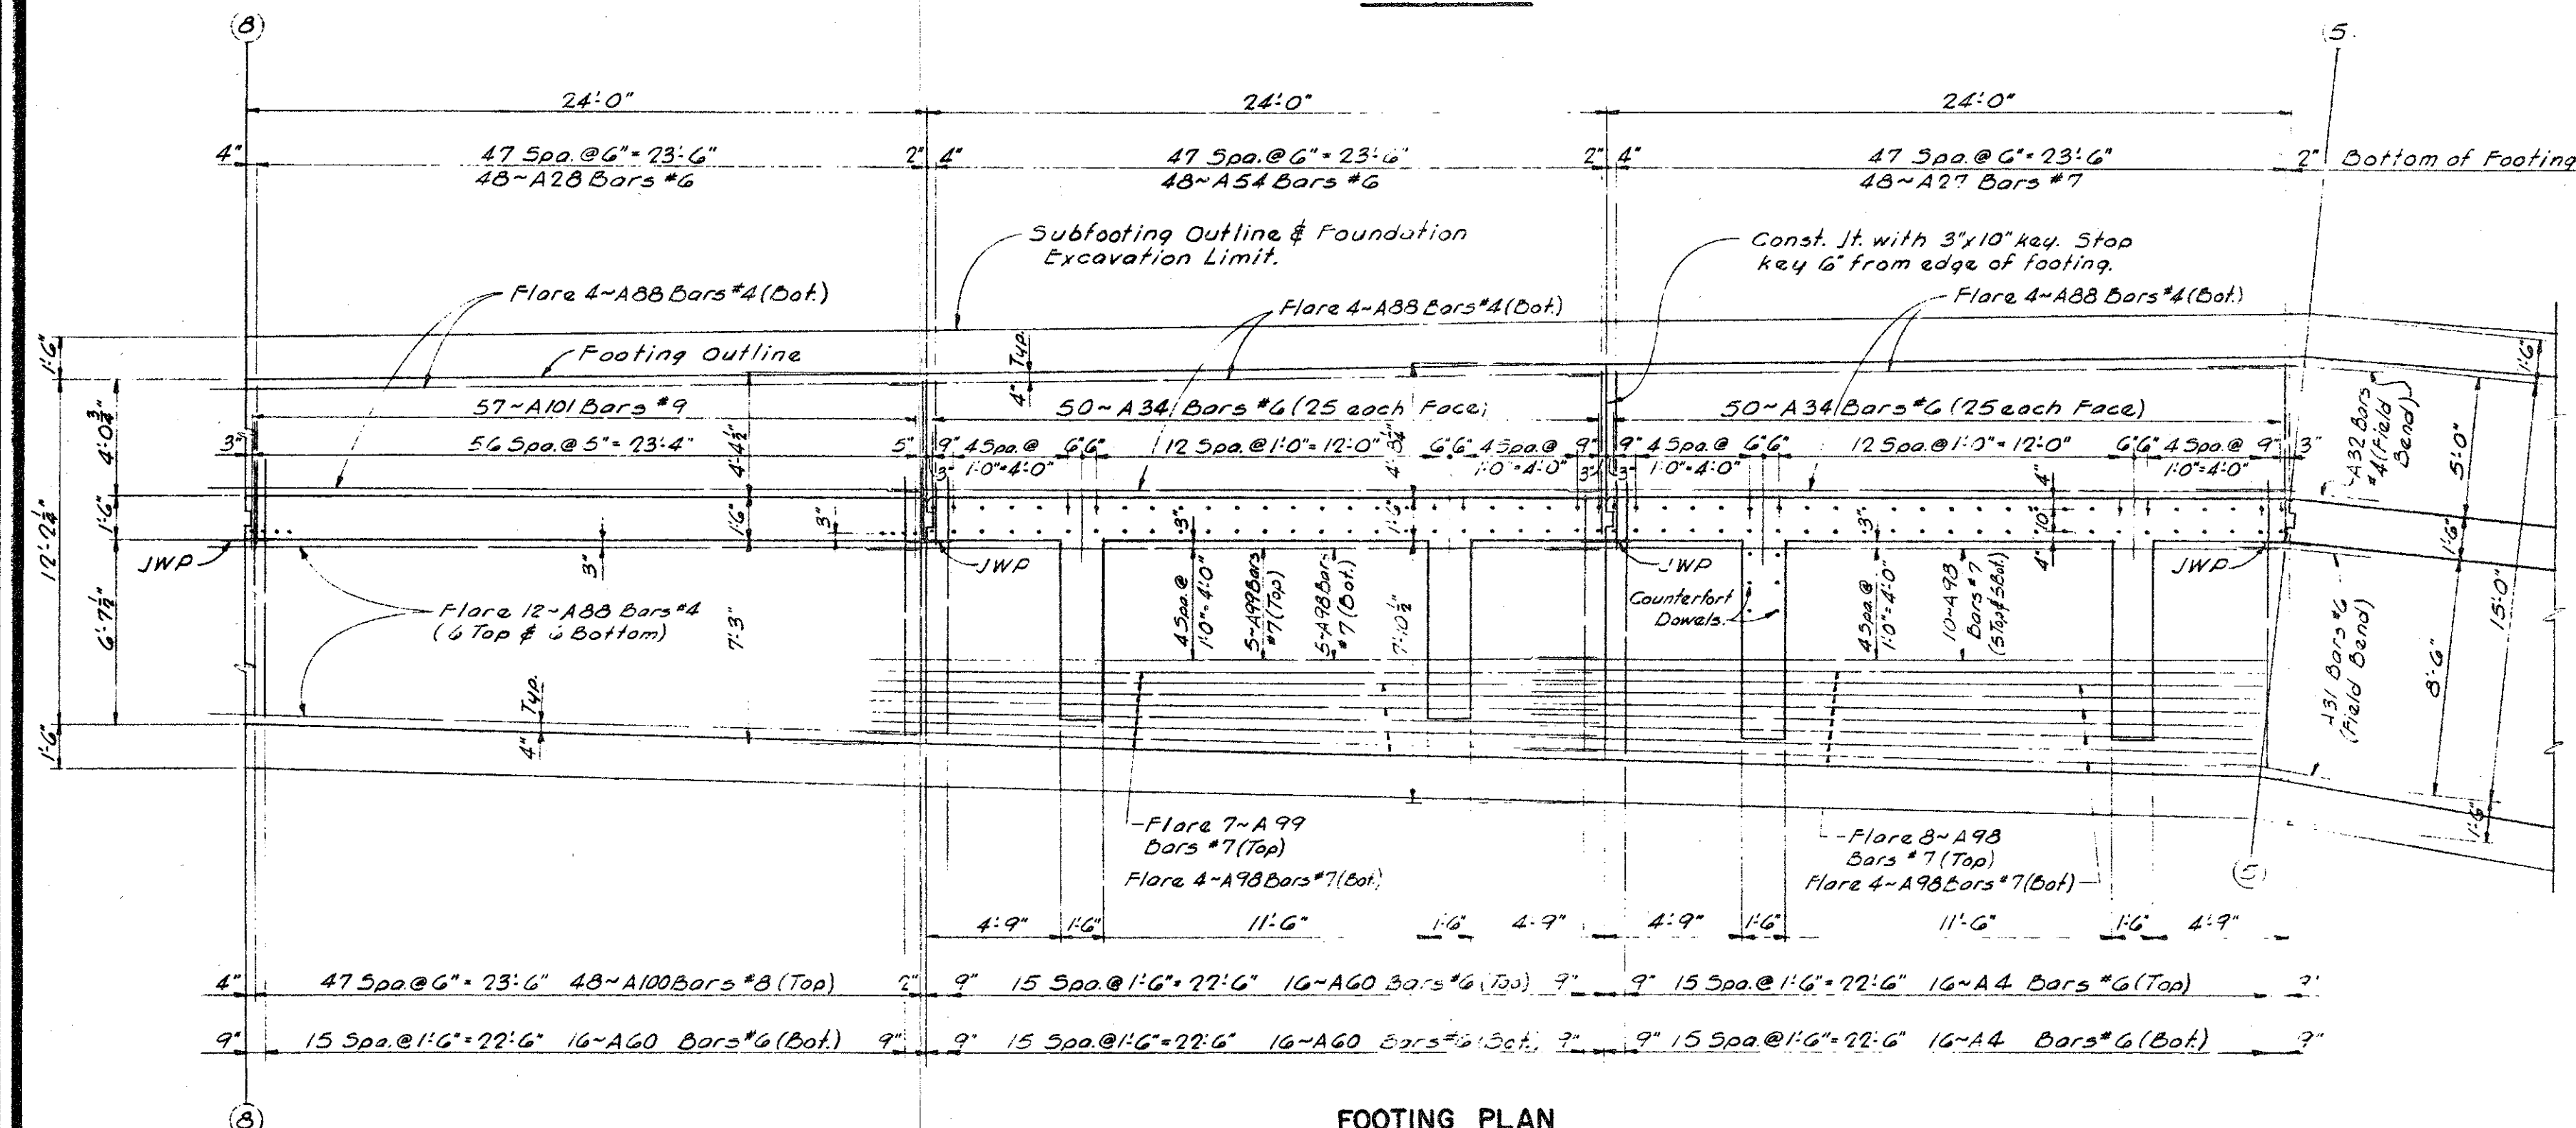 8
5
24'-0"
24'-0"
24'-0"
4"
47 Spa. @ 6" = 23'-6"
48~A28 Bars #6
2"
4"
47 Spa. @ 6" = 23'-6"
48~A54 Bars #6
2"
4"
47 Spa. @ 6" = 23'-6"
48~A27 Bars #7
2"
Bottom of Footing
Subfooting Outline & Foundation
Excavation Limit.
Const. Jt. with 3"x10" key. Stop
key 6" from edge of footing.
Flare 4~A88 Bars #4 (Bot.)
Flare 4~A88 Bars #4 (Bot.)
Flare 4~A88 Bars #4 (Bot.)
Footing Outline
4" Typ.
1'-6"
4'-0 3/4"
1'-6"
6'-7 1/2"
12'-2 1/4"
1'-6"
57~A101 Bars #9
50~A34 Bars #6 (25 each Face)
50~A34 Bars #6 (25 each Face)
3"
56 Spa. @ 5" = 23'-4"
5"
4'-4 1/2"
9"
4 Spa. @
1'-0" = 4'-0"
6"
6"
12 Spa. @ 1'-0" = 12'-0"
6"
6"
4 Spa. @
1'-0" = 4'-0"
9"
3"
3"
9"
4 Spa. @
1'-0" = 4'-0"
6"
6"
12 Spa. @ 1'-0" = 12'-0"
6"
6"
4 Spa. @
1'-0" = 4'-0"
9"
3"
3"
A32 Bars
#4 (Field
Bend)
5'-0"
1'-6"
1'-6"
8'-6"
15'-0"
1'-6"
1'-6"
3"
3"
1'-6"
3"
3"
4"
10"
4"
JWP
JWP
JWP
JWP
Flare 12~A88 Bars #4
(6 Top & 6 Bottom)
7'-3"
4" Typ.
4 Spa. @
1'-0" = 4'-0"
5~A99 Bars
#7 (Top)
5~A98 Bars
#7 (Bot.)
7'-10 1/2"
Counterfort
Dowels
4 Spa. @
1'-0" = 4'-0"
10~A98
Bars #7
(5 Top & 5 Bot.)
A31 Bars #6
(Field Bend)
Flare 7~A99
Bars #7 (Top)
Flare 4~A98 Bars #7 (Bot.)
Flare 8~A98
Bars #7 (Top)
Flare 4~A98 Bars #7 (Bot)
5
4'-9"
1'-6"
11'-6"
1'-6"
4'-9"
4'-9"
1'-6"
11'-6"
1'-6"
4'-9"
4"
47 Spa. @ 6" = 23'-6" 48~A100 Bars #8 (Top)
2"
9"
15 Spa. @ 1'-6" = 22'-6" 16~A60 Bars #6 (Top)
9"
9"
15 Spa. @ 1'-6" = 22'-6" 16~A4 Bars #6 (Top)
9"
15 Spa. @ 1'-6" = 22'-6" 16~A60 Bars #6 (Bot.)
9"
9"
15 Spa. @ 1'-6" = 22'-6" 16~A60 Bars #6 (Bot.)
9"
9"
15 Spa. @ 1'-6" = 22'-6" 16~A4 Bars #6 (Bot.)
9"
8
FOOTING PLAN